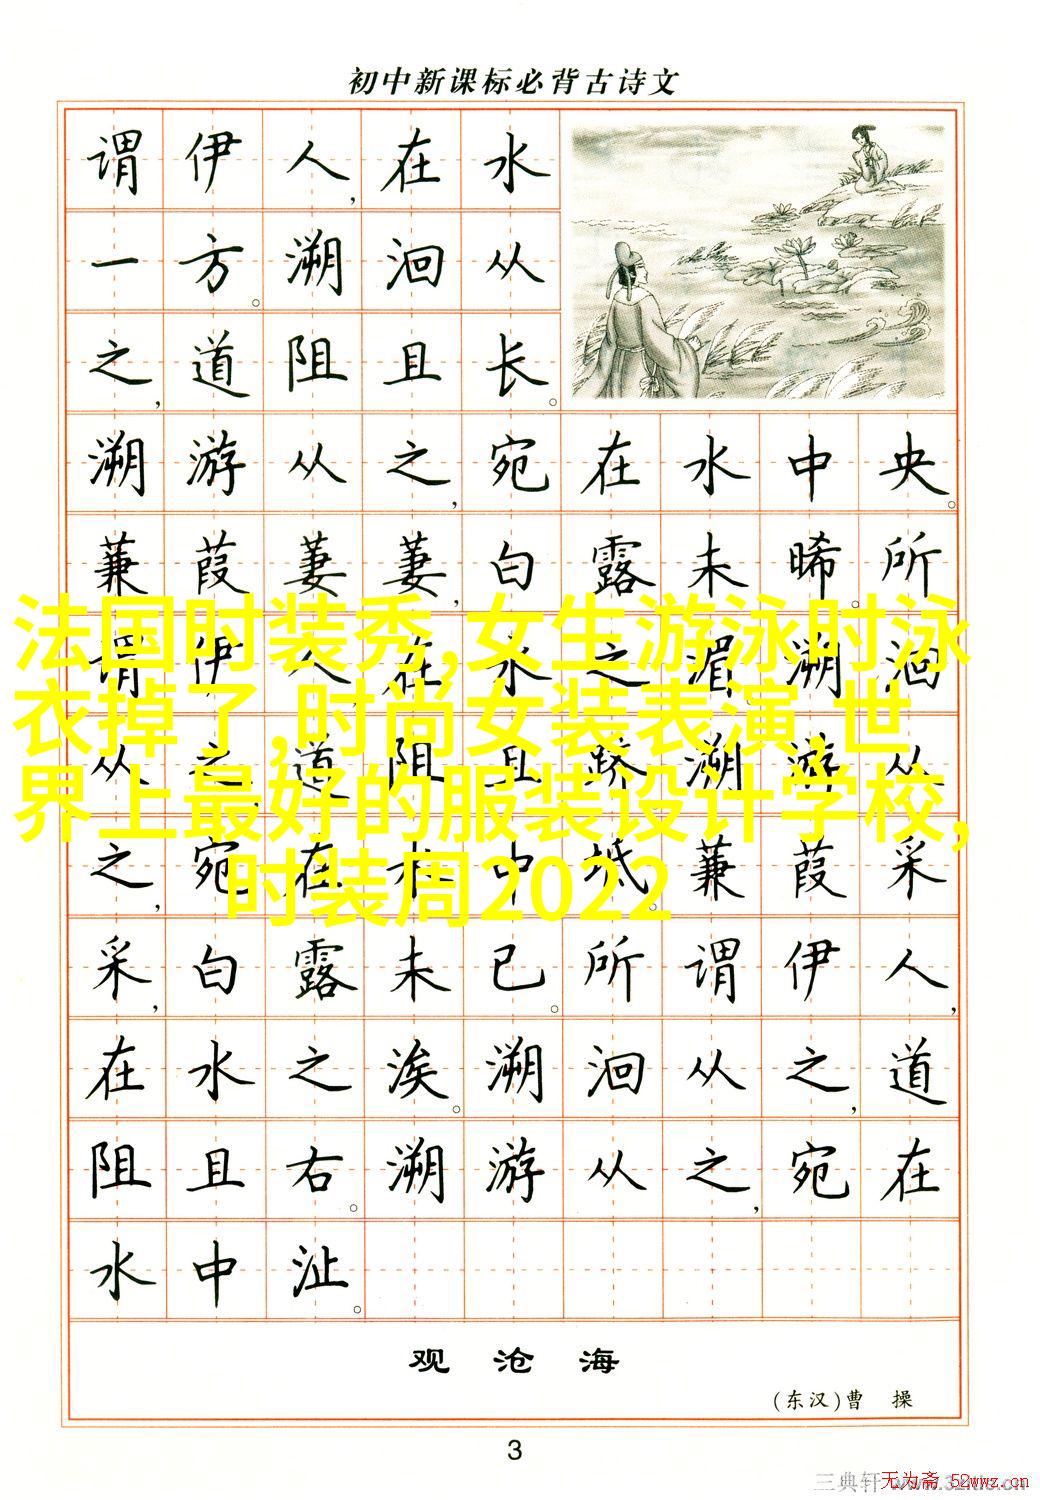 初中新课标必背古诗文
谓伊人,在水
一方。溯洄从
之,道阻且长。
溯游从之,宛在水中央。
蒹葭萋萋,白露未晞。所
谓伊人,在水之湄。溯洄
从之,道阻且跻。溯游从
之,宛在水中坻。蒹葭采
采,白露未已。所谓伊人,
在水之涘。溯洄从之,道
阻且右。溯游从之,宛在
水中沚。
法国时装秀,女生游泳时泳
衣掉了,时尚女装表演,世
界上最好的服装设计学校,
时装周2022
观沧海
(东汉)曹 操
3
三典轩
无为斋 52wwz.cn